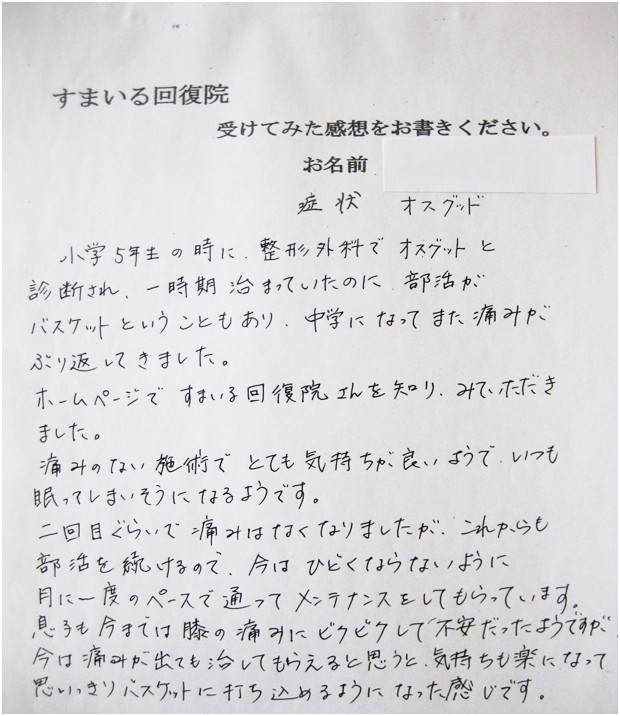 すまいる回復院
受けてみた感想をお書きください。
お名前
症状 オスグッド
小学5年生の時に、整形外科でオスグットと
診断され、一時期治まっていたのに、部活が
バスケットということもあり、中学になってまた痛みが
ぶり返してきました。
ホームページですまいる回復院さんを知り、みていただき
ました。
痛みのない施術でとても気持ちが良いようで、いつも
眠ってしまいそうになるようです。
二回目ぐらいで痛みはなくなりましたが、これからも
部活を続けるので、今はひどくならないように
月に一度のペースで通ってメンテナンスをしてもらっています。
息子も今までは膝の痛みにビクビクして不安だったようですが
今は痛みが出ても治してもらえると思うと、気持ちも楽になって
思いっきりバスケットに打ち込めるようになった感じです。